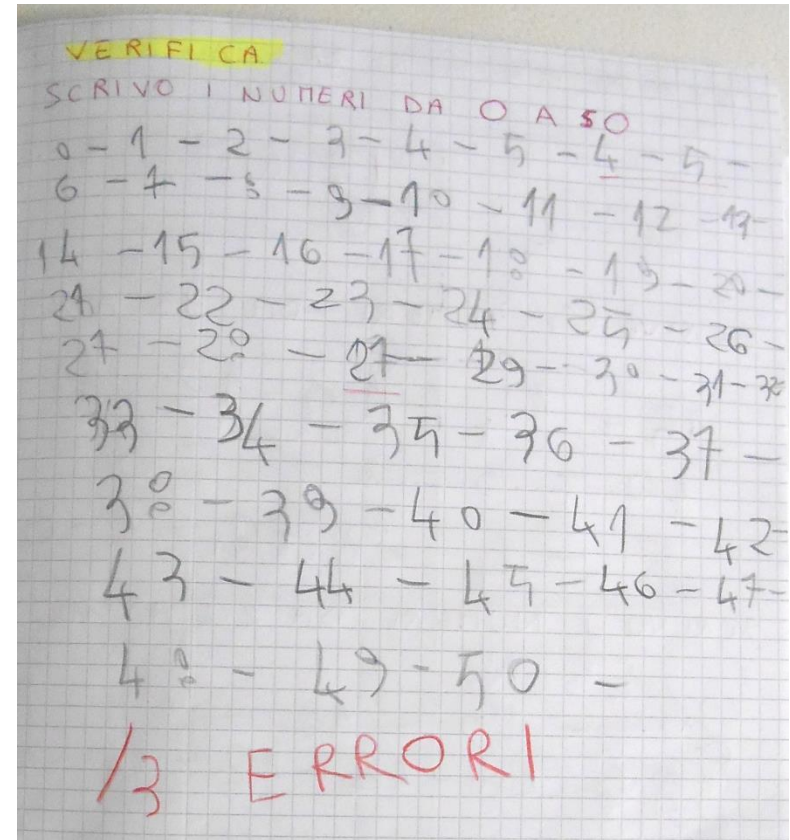 VERIFICA
SCRIVO I NUMERI DA 0 A 50
0 - 1 - 2 - 3 - 4 - 5 - 4 - 5 -
6 - 7 - 8 - 9 - 10 - 11 - 12 - 13 -
14 - 15 - 16 - 17 - 18 - 19 - 20 -
21 - 22 - 23 - 24 - 25 - 26 -
27 - 28 - 27 - 29 - 30 - 31 - 32
33 - 34 - 35 - 36 - 37 -
38 - 39 - 40 - 41 - 42 -
43 - 44 - 45 - 46 - 47 -
48 - 49 - 50 -
/3 ERRORI